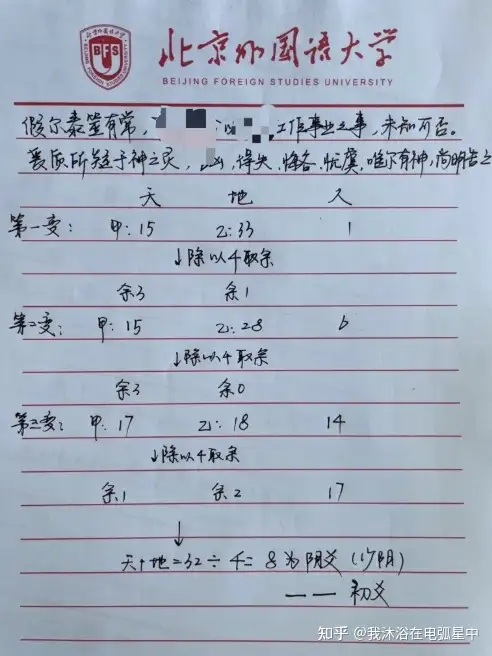 北京外国语大学
BEIJING FOREIGN STUDIES UNIVERSITY
假尔泰筮有常，工作事业之事，未知可否。
爰质所疑于神之灵，凶，得失，悔吝，忧虞，唯尔有神，尚明告之
天 地 人
第一变： 甲：15 乙：33 1
↓除以4取余
余3 余1
第二变： 甲：15 乙：28 6
↓除以4取余
余3 余0
第三变： 甲：17 乙：18 14
↓除以4取余
余1 余2 17
↓
天+地=32÷4=8为阴爻（少阴）
—— 初爻
知乎 @我沐浴在电弧星中